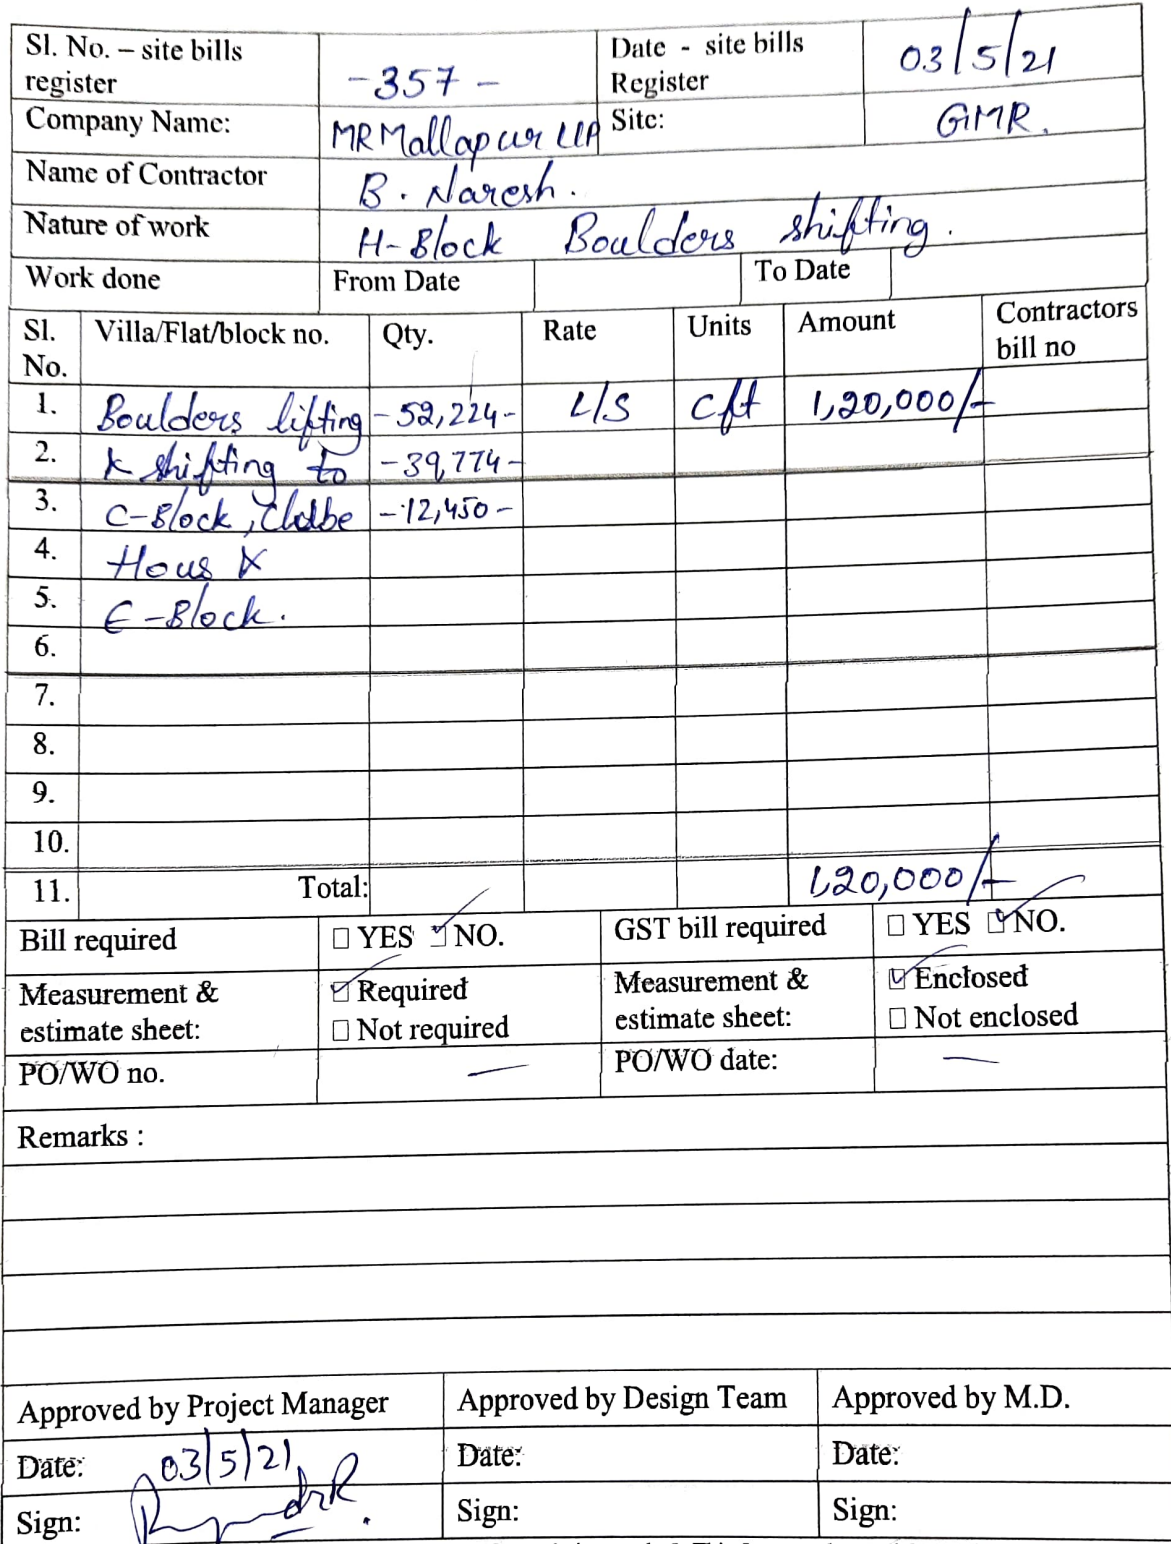 Sl. No. – site bills register -357- Date - site bills Register 03/5/21
Company Name: MR Mallapur LLP Site: GMR.
Name of Contractor B. Naresh.
Nature of work H-Block Boulders shifting.
Work done From Date To Date
Sl. No. Villa/Flat/block no. Qty. Rate Units Amount Contractors bill no
1. Boulders lifting -52,224- L/S cft 1,20,000/-
2. & shifting to -39,774-
3. C-Block, Clubbe -12,450-
4. Hous &
5. E-Block.
6.
7.
8.
9.
10.
11. Total: 1,20,000/-
Bill required ☐ YES ☑ NO. GST bill required ☐ YES ☑ NO.
Measurement & estimate sheet: ☑ Required Measurement & estimate sheet: ☑ Enclosed
☐ Not required ☐ Not enclosed
PO/WO no. — PO/WO date: —
Remarks :
Approved by Project Manager Approved by Design Team Approved by M.D.
Date: 03/5/21 Date: Date:
Sign: Sign: Sign: